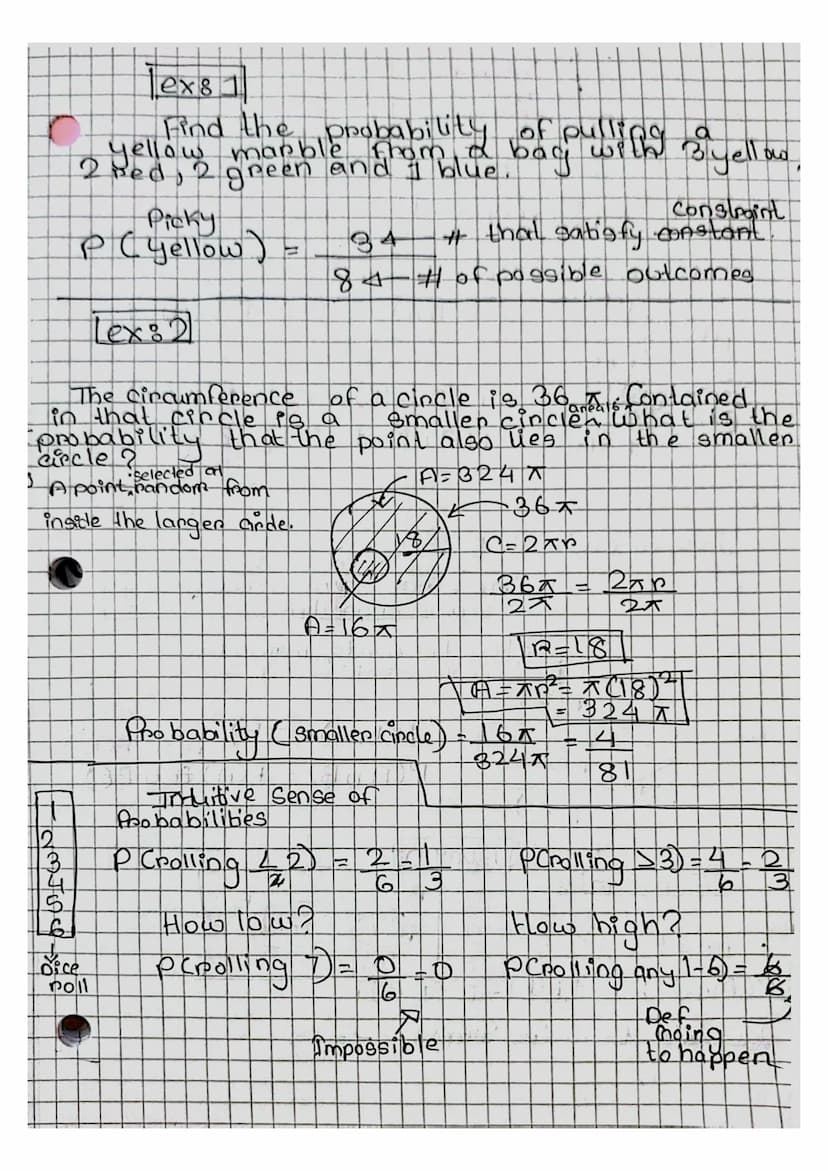 ex: 1
Find the probability of pulling a
yellow marble from a bag with 3 yellow,
2 red, 2 green and 1 blue.
Picky
constraint
P(Yellow) = 3 ← # that satisfy constant
8 ← # of possible outcomes
ex: 2
The circumference of a circle is 36 π. Contained
in that circle is a smaller circle area 16π. What is the
probability that the point also lies in the smaller
circle?
A point selected at random from
inside the larger circle.
A = 324 π
36π
18
C = 2πr
36π/2π = 2πr/2π
A = 16π
R = 18
A = πr² = π(18)²
= 324 π
Probability (smaller circle) = 16π/324π = 4/81
Intuitive Sense of
Probabilities
1
2
3
4
5
6
Dice
roll
P(rolling ≤ 2) = 2/6 = 1/3
P(rolling ≥ 3) = 4/6 = 2/3
How low?
How high?
P(rolling 7) = 0/6 = 0
P(rolling any 1-6) = 6/6
Impossible
Def
going
to happen